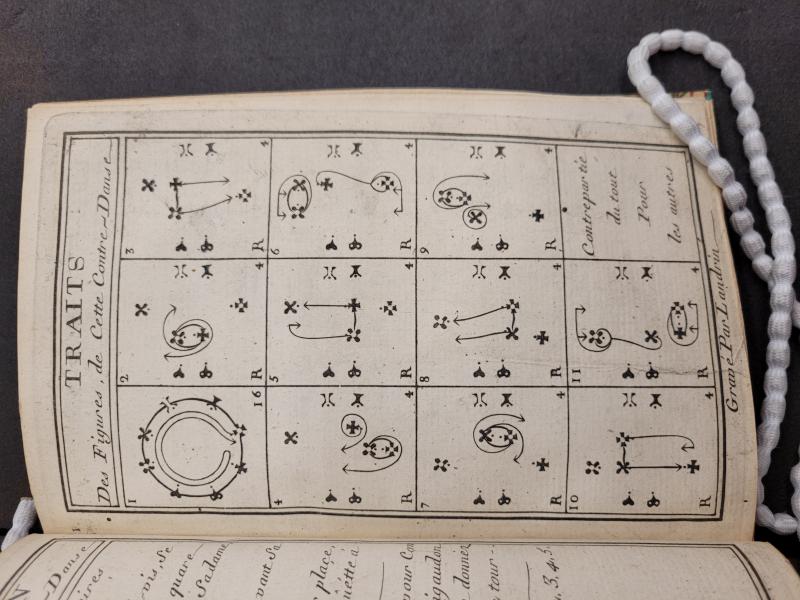 TRAITS
Des Figures, de Cette Contre-Danse
1
16
2
4
3
4
4
4
R
5
4
R
6
4
R
7
4
R
8
4
R
9
4
R
10
4
R
11
4
R
Contrepartie
du tout
Pour
les autres
Gravé Par Landrin
N
Danse
vis, Se
quare
Sadame
vant Sa
place,
your
igaudon
donner
tour
3, 4, 5,